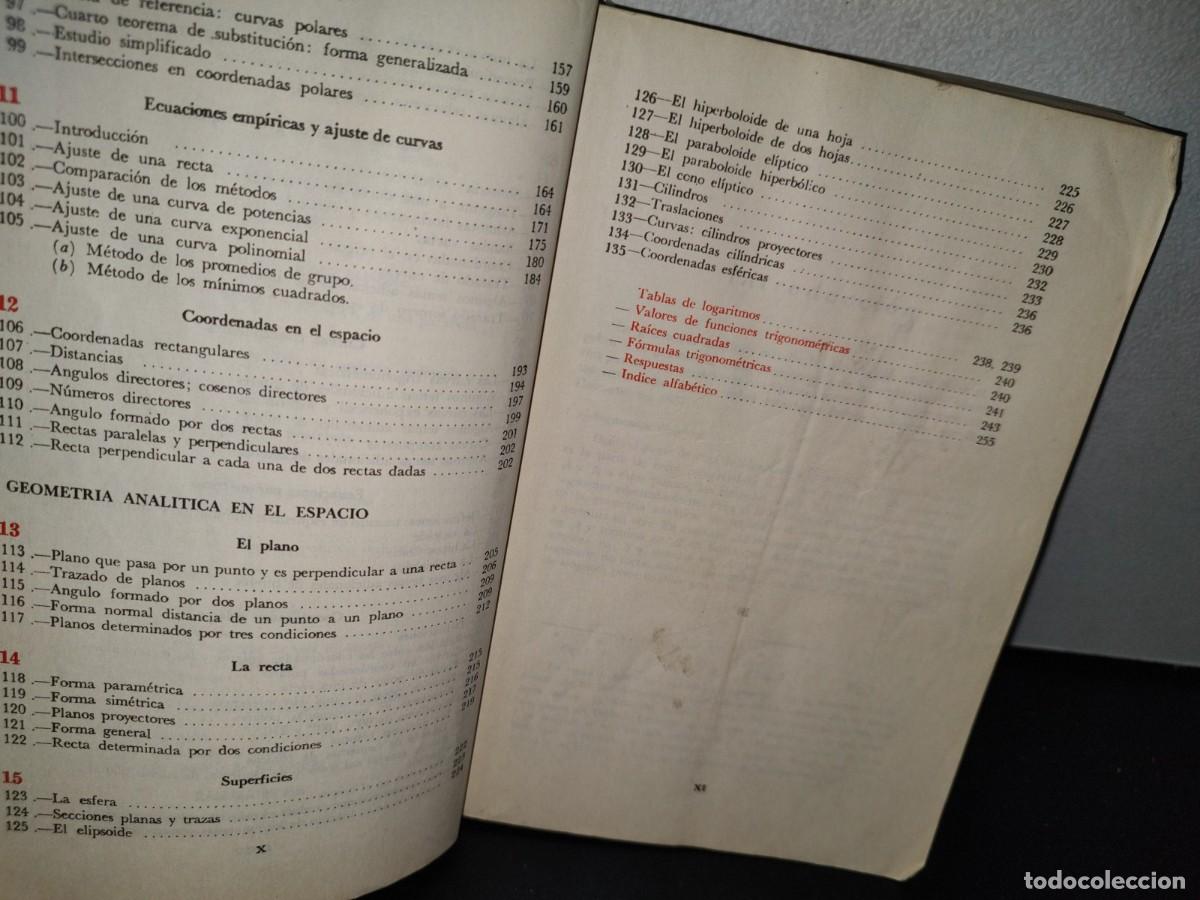 de referencia: curvas polares
97 .—Cuarto teorema de substitución: forma generalizada 157
98 .—Estudio simplificado 159
99 .—Intersecciones en coordenadas polares 160
161
11
Ecuaciones empíricas y ajuste de curvas
100 .—Introducción 164
101 .—Ajuste de una recta 164
102 .—Comparación de los métodos 171
103 .—Ajuste de una curva de potencias 175
104 .—Ajuste de una curva exponencial 180
105 .—Ajuste de una curva polinomial 184
(a) Método de los promedios de grupo.
(b) Método de los mínimos cuadrados.
12
Coordenadas en el espacio
106 .—Coordenadas rectangulares 193
107 .—Distancias 194
108 .—Angulos directores; cosenos directores 197
109 .—Números directores 199
110 .—Angulo formado por dos rectas 201
111 .—Rectas paralelas y perpendiculares 202
112 .—Recta perpendicular a cada una de dos rectas dadas 202
GEOMETRIA ANALITICA EN EL ESPACIO
13
El plano
113 .—Plano que pasa por un punto y es perpendicular a una recta 205
114 .—Trazado de planos 206
115 .—Angulo formado por dos planos 209
116 .—Forma normal distancia de un punto a un plano 209
117 .—Planos determinados por tres condiciones 212
14
La recta
118 .—Forma paramétrica 215
119 .—Forma simétrica 215
120 .—Planos proyectores 216
121 .—Forma general 217
122 .—Recta determinada por dos condiciones 219
15
Superficies
123 .—La esfera 222
124 .—Secciones planas y trazas 223
125 .—El elipsoide 224
X
126—El hiperboloide de una hoja 225
127—El hiperboloide de dos hojas 226
128—El paraboloide elíptico 227
129—El paraboloide hiperbólico 228
130—El cono elíptico 229
131—Cilindros 230
132—Traslaciones 232
133—Curvas: cilindros proyectores 233
134—Coordenadas cilíndricas 236
135—Coordenadas esféricas 236
Tablas de logaritmos 238, 239
— Valores de funciones trigonométricas 240
— Raíces cuadradas 240
— Fórmulas trigonométricas 241
— Respuestas 243
— Indice alfabético 255
XI
todocoleccion